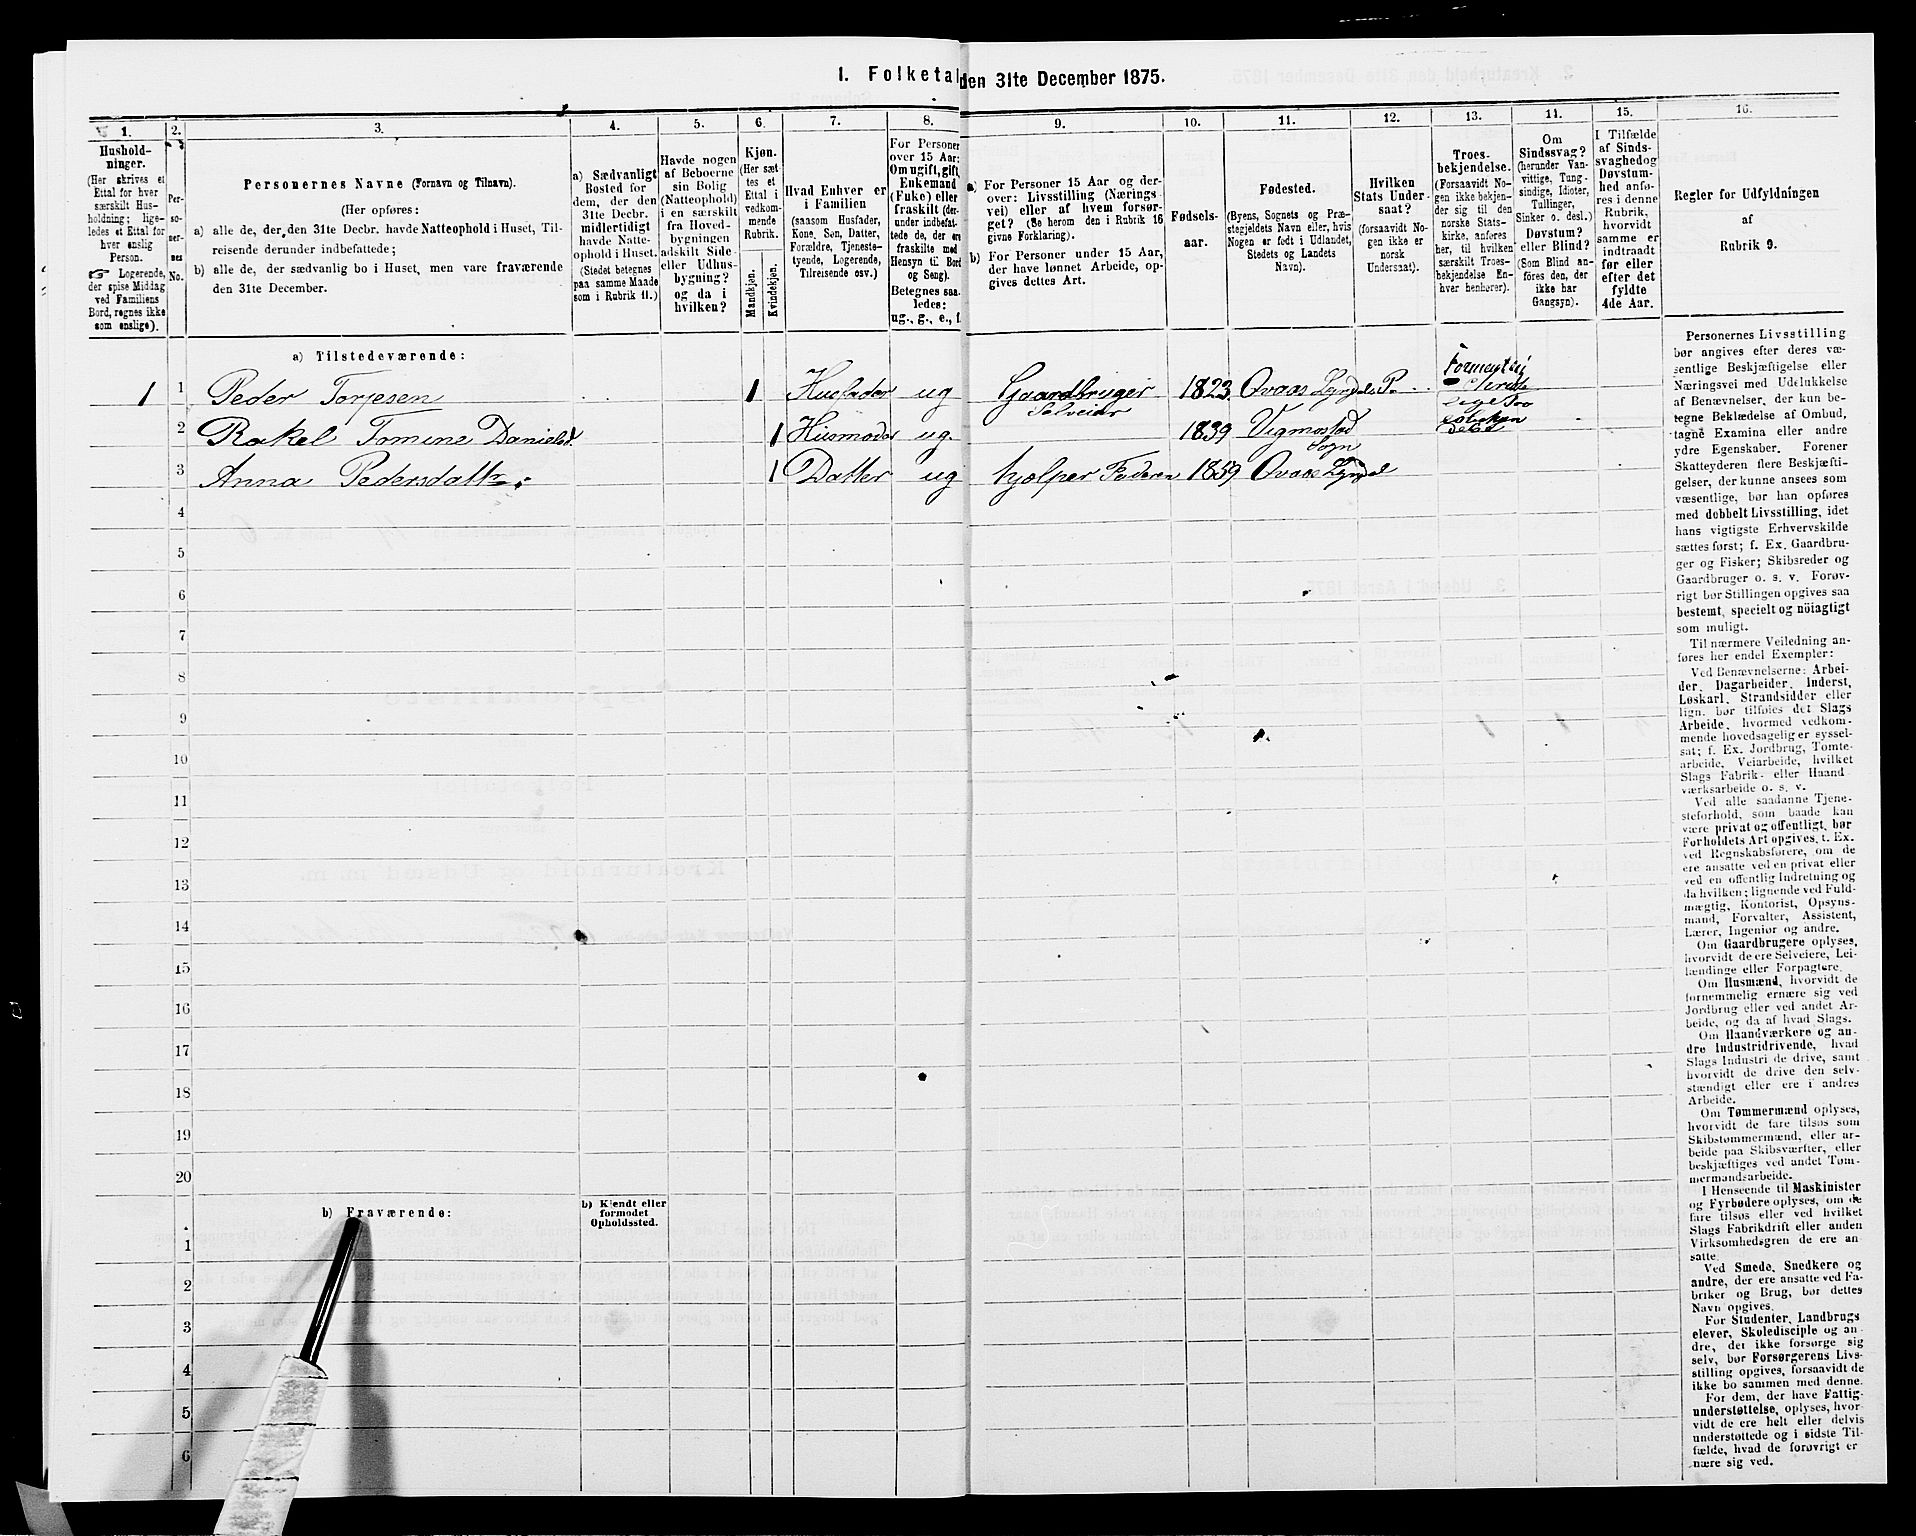 1. Folketal
den 31te December 1875.
1.
Hushold-
ninger.
(Her skrives et
Ettal for hver
særskilt Hus-
holdning; lige-
ledes et Ettal for
hver enslig
Person.
☞ Logerende,
der spise Middag
ved Familiens
Bord, regnes ikke
som enslige).
2.
Per-
so-
ner-
nes
No.
3.
Personernes Navne (Fornavn og Tilnavn).
(Her opføres:
a) alle de, der den 31te Decbr. havde Natteophold i Huset, Til-
reisende derunder indbefattede;
b) alle de, der sædvanlig bo i Huset, men vare fraværende
den 31te December.
4.
a) Sædvanligt
Bosted for
dem, der den
31te Decbr.
midlertidigt
havde Natte-
ophold i Huset.
(Stedet betegnes
paa samme Maade
som i Rubrik 11.)
5.
Havde nogen
af Beboerne
sin Bolig
(Natteophold)
i en særskilt
fra Hoved-
bygningen
adskilt Side-
eller Udhus-
bygning?
og da i
hvilken?
6.
Kjøn.
(Her sæt-
tes et
Ettal i
vedkom-
mende
Rubrik.
Mandkjøn.
Kvindekjøn.
7.
Hvad Enhver er
i Familien
(saasom Husfader,
Kone, Søn, Datter,
Forældre, Tjeneste-
tyende, Logerende,
Tilreisende osv.)
8.
For Personer
over 15 Aar:
Om ugift, gift,
Enkemand
(Enke) eller
fraskilt (der-
under indbefat-
tede de, der ere
fraskilte med
Hensyn til Bord
og Seng).
Betegnes saa-
ledes:
ug., g., e., f.
9.
a) For Personer 15 Aar og der-
over: Livsstilling (Nærings-
vei) eller af hvem forsør-
get? (Se herom den i Rubrik 16
givne Forklaring).
b) For Personer under 15 Aar,
der have lønnet Arbeide, op-
gives dettes Art.
10.
Fødsels-
aar.
11.
Fødested.
(Byens, Sognets og Præ-
stegjeldets Navn eller, hvis
Nogen er født i Udlandet,
Stedets og Landets
Navn).
12.
Hvilken
Stats Under-
saat?
(forsaavidt No-
gen ikke er
norsk
Undersaat).
13.
Troes-
bekjendelse.
(Forsaavidt No-
gen ikke bekjen-
der sig til den
norske Stats-
kirke, anføres
her, til hvilken
særskilt Troes-
bekjendelse En-
hver henhører).
14.
Om
Sindssvag?
(herunder Van-
vittige, Tung-
sindige, Idioter,
Tullinger,
Sinker o. desl.)
Døvstum?
eller Blind?
(Som Blind an-
føres den, der
ikke har
Gangsyn).
15.
I Tilfælde
af Sinds-
svaghed og
Døvstum-
hed anfø-
res i denne
Rubrik,
hvorvidt
samme er
indtraadt
før eller
efter det
fyldte
4de Aar.
16.
Regler for Udfyldningen
af
Rubrik 9.
a) Tilstedeværende:
1 1 Peder Torjesen 1 Husfader ug Gaardbruger Selveier 1823 Ovaas Lyngdals P.
2 Rakel Tomine Danielsd. 1 Husmoder ug. 1839 Vigmostad Sogn
3 Anna Pedersdatter 1 Datter ug hjelper Faderen 1859 Ovaas Lyngdal
4
5
6
7
8
9
10
11
12
13
14
15
16
17
18
19
20
b) Fraværende:
b) Kjendt eller
formodet
Opholdssted.
1
2
3
4
5
6
Personernes Livsstilling
bør angives efter deres væ-
sentlige Beskjæftigelse eller
Næringsvei med Udelukkelse
af Benævnelser, der kun be-
tegne Beklædelse af Ombud,
tagne Examina eller andre
ydre Egenskaber. Forener
Skatteyderen flere Beskjæfti-
gelser, der kunne ansees som
væsentlige, bør han opføres
med dobbelt Livsstilling, idet
hans vigtigste Erhvervskilde
sættes først; f. Ex. Gaardbru-
ger og Fisker; Skibsreder og
Gaardbruger o. s. v. Forøv-
rigt bør Stillingen opgives saa
bestemt, specielt og nøiagtigt
som muligt.
Til nærmere Veiledning an-
føres her endel Exempler:
Ved Benævnelserne: Arbei-
der, Dagarbeider, Inderst,
Løskarl, Strandsidder eller
lign. bør tilføies det Slags
Arbeide, hvormed vedkom-
mende hovedsagelig er syssel-
sat; f. Ex. Jordbrug, Tomte-
arbeide, Veiarbeide, hvilket
Slags Fabrik- eller Haand-
værksarbeide o. s. v.
Ved alle saadanne Tjene-
steforhold, som baade kan
være privat og offentligt, bør
Forholdets Art opgives, t. Ex.
ved Regnskabsførere, om de
ere ansatte ved en privat eller
ved en offentlig Indretning og
da hvilken; lignende ved Fuld-
mægtig, Kontorist, Opsyns-
mand, Forvalter, Assistent,
Lærer, Ingeniør og andre.
Om Gaardbrugere oplyses,
hvorvidt de ere Selveiere, Lei-
lændinge eller Forpagtere.
Om Husmænd, hvorvidt de
fornemmelig ernære sig ved
Jordbrug eller ved andet Ar-
beide, og da af hvad Slags.
Om Haandværkere og an-
dre Industridrivende, hvad
Slags Industri de drive, samt
hvorvidt de drive den selv-
stændigt eller ere i andres
Arbeide.
Om Tømmermænd oplyses,
hvorvidt de fare tilsøs som
Skibstømmermænd, eller ar-
beide paa Skibsværfter, eller
beskjæftiges ved andet Tøm-
mermandsarbeide.
I Henseende til Maskinister
og Fyrbødere oplyses, om de
fare tilsøs eller ved hvilket
Slags Fabrikdrift eller anden
Virksomhedsgren de ere an-
satte.
Ved Smede, Snedkere og
andre, der ere ansatte ved Fa-
briker og Brug, bør dettes
Navn opgives.
For Studenter, Landbrugs-
elever, Skoledisciple og an-
dre, der ikke forsørge sig
selv, bør Forsørgerens Livs-
stilling opgives, forsaavidt de
ikke bo sammen med denne.
For dem, der have Fattig-
understøttelse, oplyses, hvor-
vidt de ere helt eller delvis
understøttede og i sidste Til-
fælde, hvad de forøvrigt er-
nære sig ved.